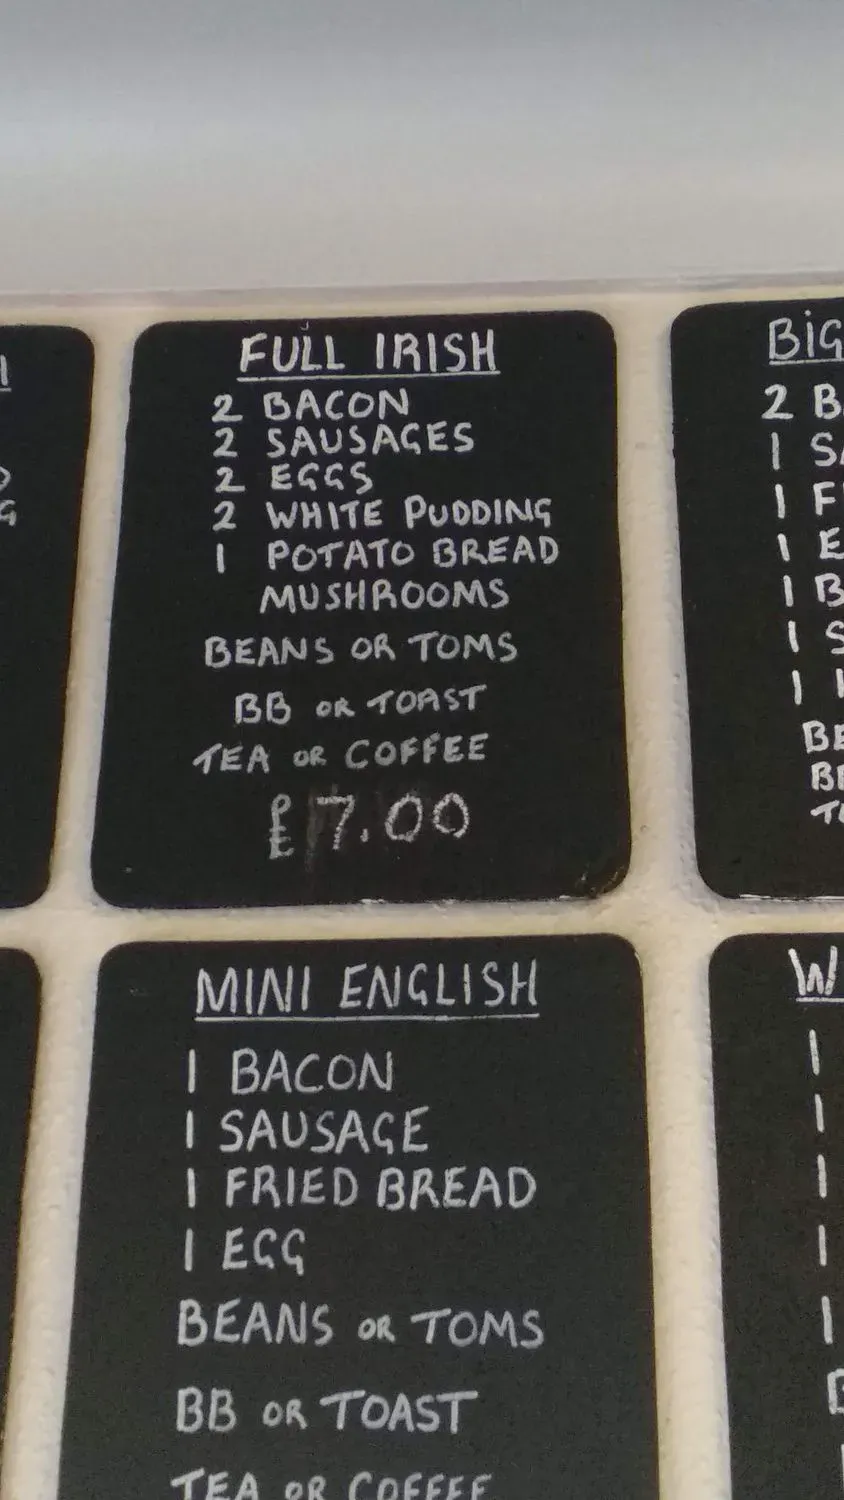 FULL IRISH
2 BACON
2 SAUSAGES
2 EGGS
2 WHITE PUDDING
1 POTATO BREAD
MUSHROOMS
BEANS OR TOMS
BB OR TOAST
TEA OR COFFEE
£7.00
BIG
2 B
1 SA
1 F
1 E
1 B
1 S
1
BE
BE
MINI ENGLISH
1 BACON
1 SAUSAGE
1 FRIED BREAD
1 EGG
BEANS OR TOMS
BB OR TOAST
TEA OR COFFEE
W
1
1
1
1
1